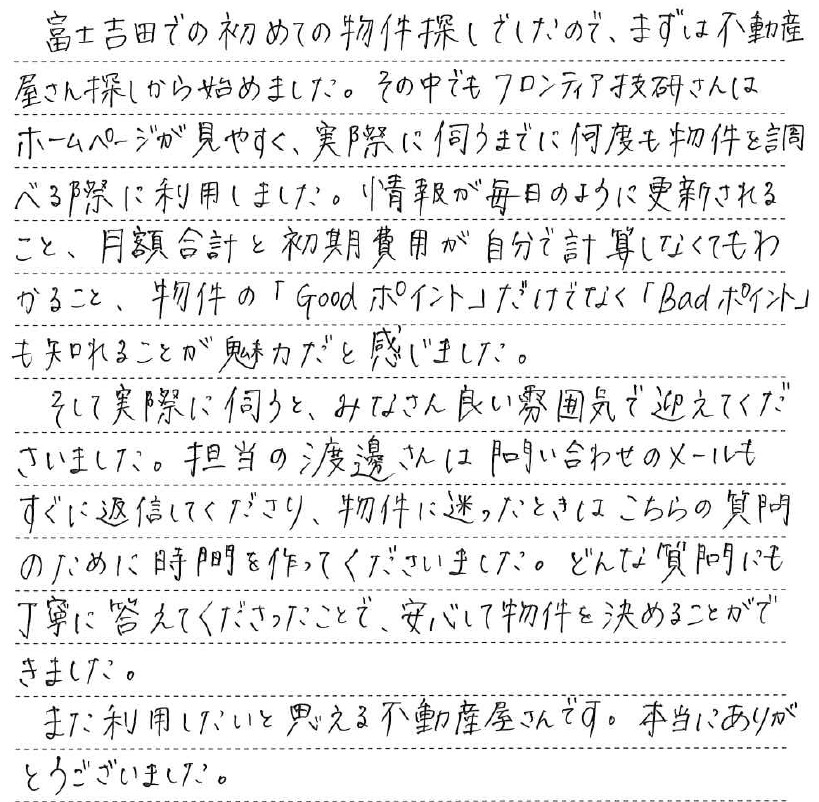 富士吉田での初めての物件探しでしたので、まずは不動産
屋さん探しから始めました。その中でもフロンティア技研さんは
ホームページが見やすく、実際に伺うまでに何度も物件を調
べる際に利用しました。情報が毎日のように更新される
こと、月額合計と初期費用が自分で計算しなくてもわ
かること、物件の「Goodポイント」だけでなく「Badポイント」
も知れることが魅力だと感じました。
そして実際に伺うと、みなさん良い雰囲気で迎えてくだ
さいました。担当の渡邊さんは問い合わせのメールも
すぐに返信してくださり、物件に迷ったときはこちらの質問
のために時間を作ってくださいました。どんな質問にも
丁寧に答えてくださったことで、安心して物件を決めることがで
きました。
また利用したいと思える不動産屋さんです。本当にありが
とうございました。